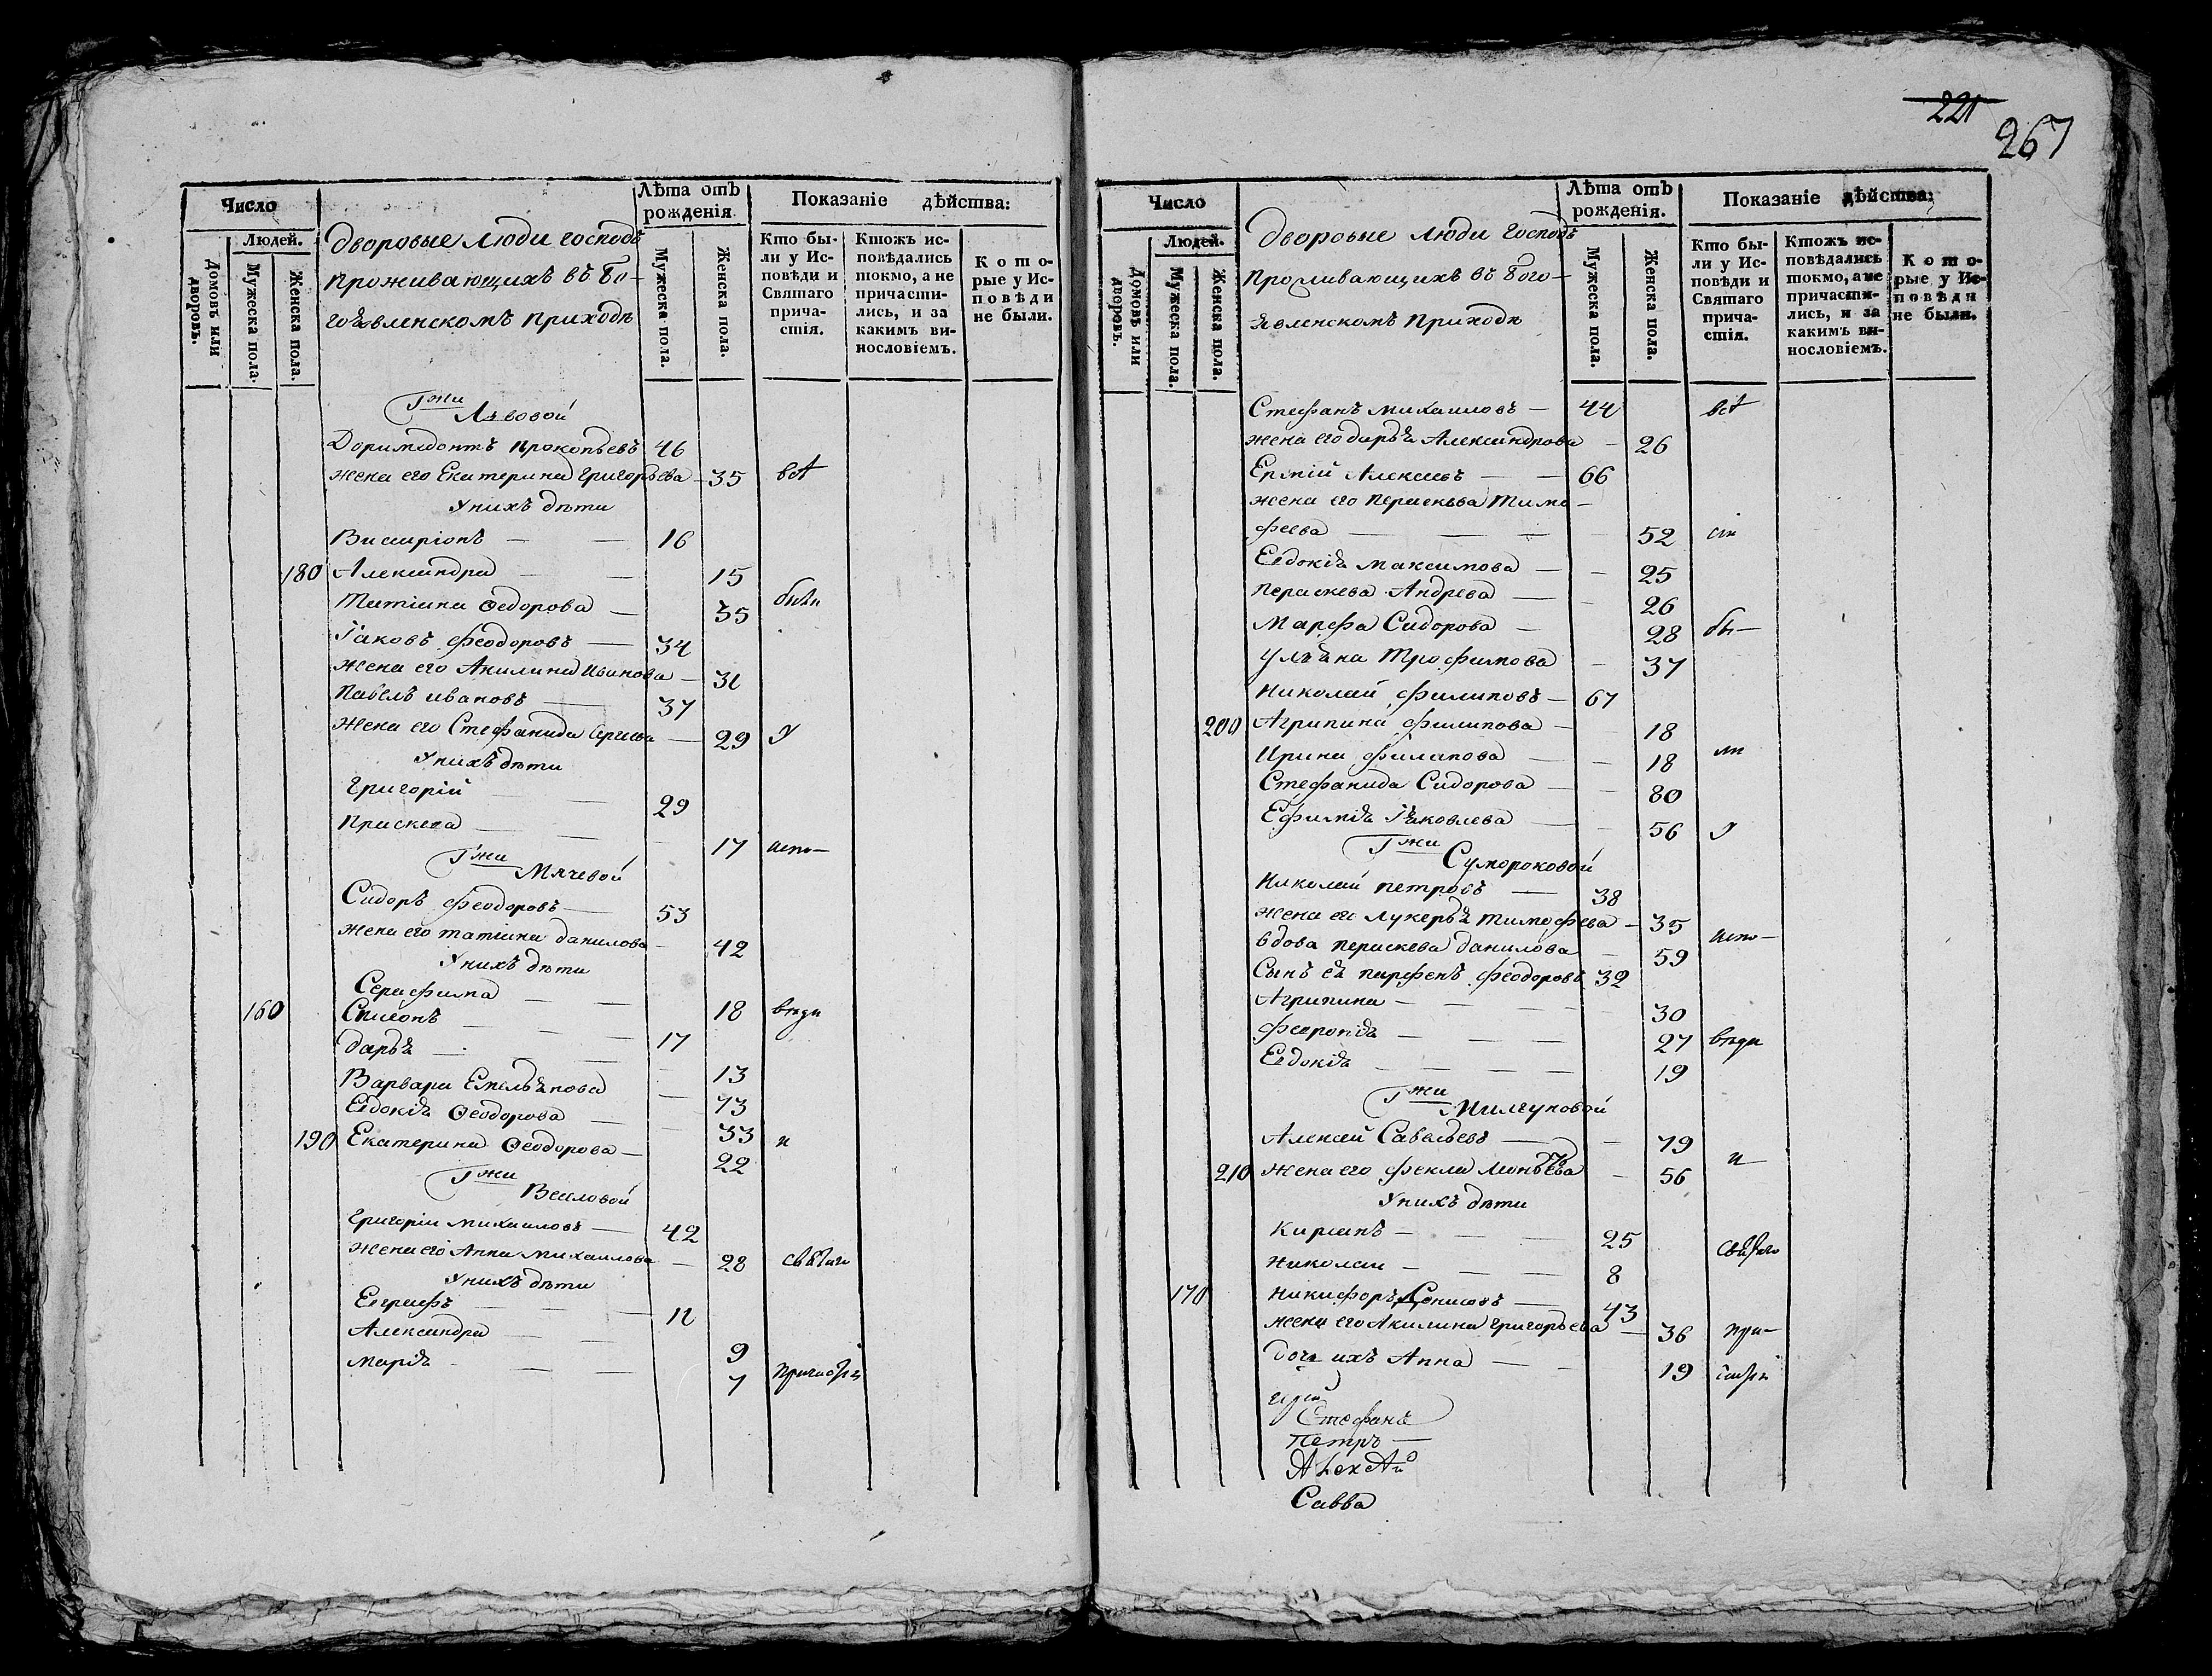 Число
Людей.
Домовъ или дворовъ.
Мужеска пола.
Женска пола.
Дворовые люди господъ
проживающихъ въ Бо-
гоявленскомъ приходѣ
Лѣта отъ рожденія
Мужеска пола.
Женска пола.
Показаніе дѣйства:
Кто бы-
ли у Ис-
повѣди и
Святаго
прича-
стія.
Ктожъ ис-
повѣдались
токмо, а не
причасти-
лись, и за
какимъ ви-
нословіемъ.
Кото-
рые у Ис-
повѣди
не были.
Гжи Львовой
Доримедонтъ Прокопьевъ 46
жена его Екатерина Григорьева 35 всѣ
У нихъ дѣти
Висаріонъ 16
180 Александра 15
Татіана Ѳедорова 35 были
Іаковъ Феодоровъ 34
жена его Акилина Иванова 31
Павелъ Ивановъ 37
жена его Стефанида Сергеева 29 у
У нихъ дѣти
Григорій 29
Прискева 17 испо-
Гжи Мячевой
Сидоръ Феодоровъ 53
жена его Татіана Данилова 42
У нихъ дѣти
Серафима 18 вѣди
160 Симеонъ 17
Дарья 13
Варвара Емельянова 73
Евдокія Ѳеодорова 33 и
190 Екатерина Ѳеодорова 22
Гжи
Григоріи Михаиловъ 42
Жена его Анна Михаилова 28 святаго
У нихъ дѣти
Евграфъ 11
Александра 9
Марія 7
221
267
Число
Людей.
Домовъ или дворовъ.
Мужеска пола.
Женска пола.
Дворовые люди господъ
Проживающихъ въ Бого-
явленскомъ приходѣ
Лѣта отъ рожденія.
Мужеска пола.
Женска пола.
Показаніе дѣйства:
Кто бы-
ли у Ис-
повѣди и
Святаго
прича-
стія.
Ктожъ ис-
повѣдались
токмо, а не
причасти-
лись, и за
какимъ ви-
нословіемъ.
Кото-
рые у Ис-
повѣди
не были.
Стефанъ Михаиловъ 44 всѣ
жена его Дарья Александрова 26
Ермій Алексеевъ 66
жена его Параскева Тимо-
феева 52
Евдокія Максимова 25
Параскева Андреева 26
Марфа Сидорова 28 бы-
Ульяна Трофимова 37
Николай Филиповъ 67
200 Агрипина Филипова 18
Ирина Филипова 18 ли
Стефанида Сидорова 80
Ефимія Іаковлева 56 у
Гжи Сумороковой
Николай Петровъ 38
жена его Лукерья Тимофеева 35 испо-
вдова Параскева Данилова 59
Сынъ ея Парфенъ Феодоровъ 32
Агрипина 30
Февронія 27 вѣди
Евдокія 19
Гжи Милгуновой
Алексей Савельевъ 79 и
210 Жена его Фекла Леонтьева 56
У нихъ дѣти
Киріанъ 25 святаго
Николаи 8
170 Никифоръ Денисовъ 43
жена его Акилина Григорьева 36 при-
Дочь ихъ Анна 19
Стефанъ
Петръ
Савва